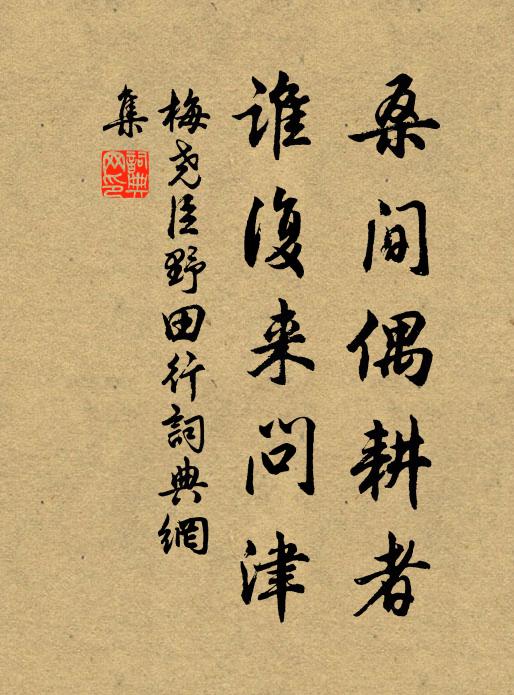 桑间偶耕者
谁復来问津
梅尧臣野田行詞典網
集
詞典
网印